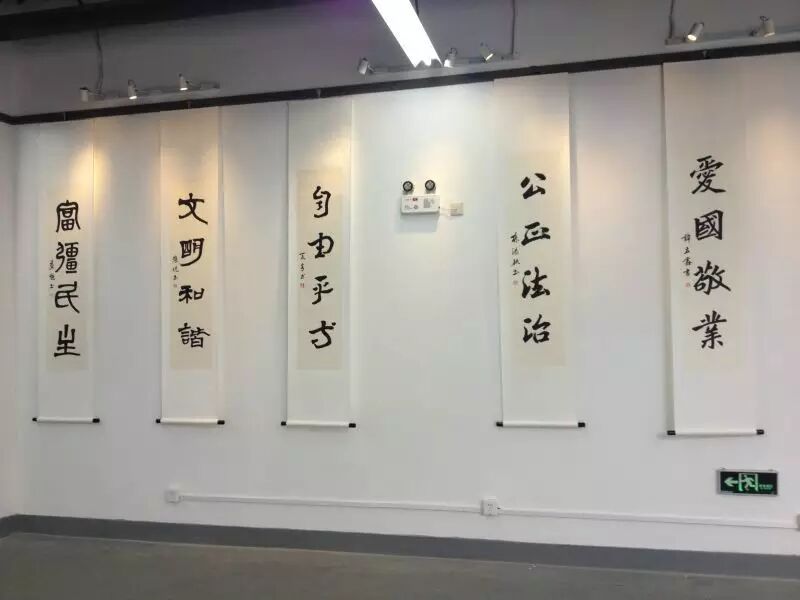 富彊民主
文明和諧
自由平等
公正法治
愛國敬業